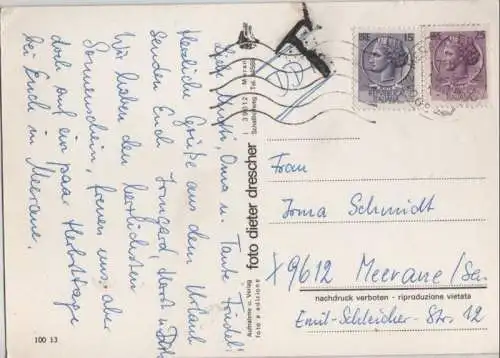 Liebe Mutti, Oma u. Tante Friedel!
Herzliche Grüße aus dem Urlaub
senden Euch Irmgard, Horst u.
Wir haben den herrlichsten
Sonnenschein, freuen uns aber
doch auf ein paar Herbsttage
bei Euch in Meerane.
100 13
Aufnahme u. Verlag
foto e edizione
foto dieter drescher
I 39012 Meran
Tel.
15
25
Frau
Irma Schmidt
X 9612 Meerane/Sa.
nachdruck verboten - riproduzione vietata
Emil-Schleicher-Str. 12